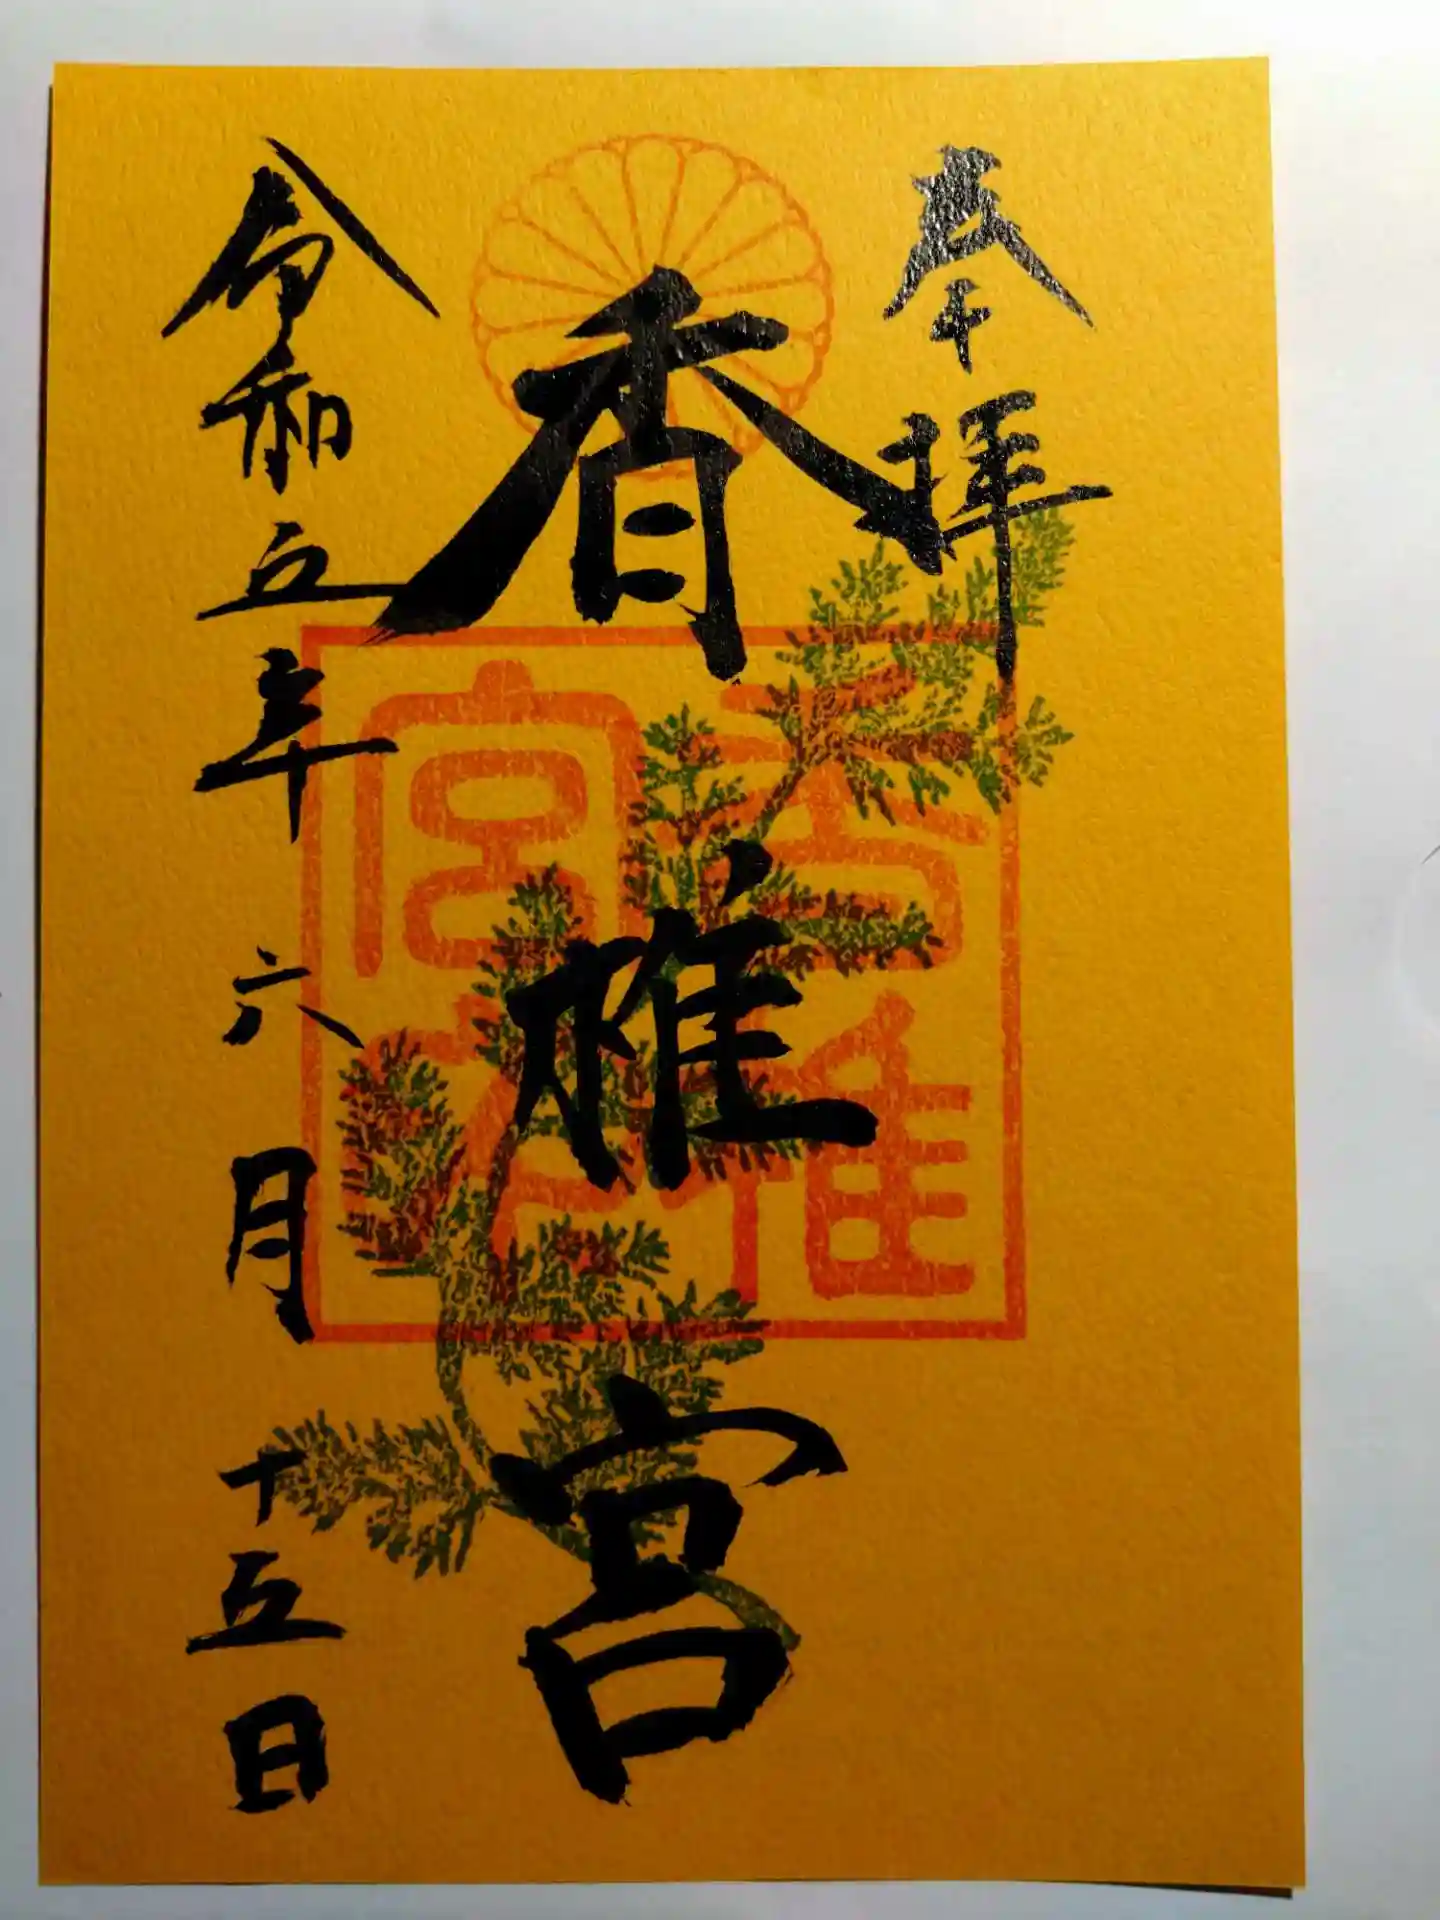 奉拝
香椎宮
令和五年六月十五日
香椎
宮